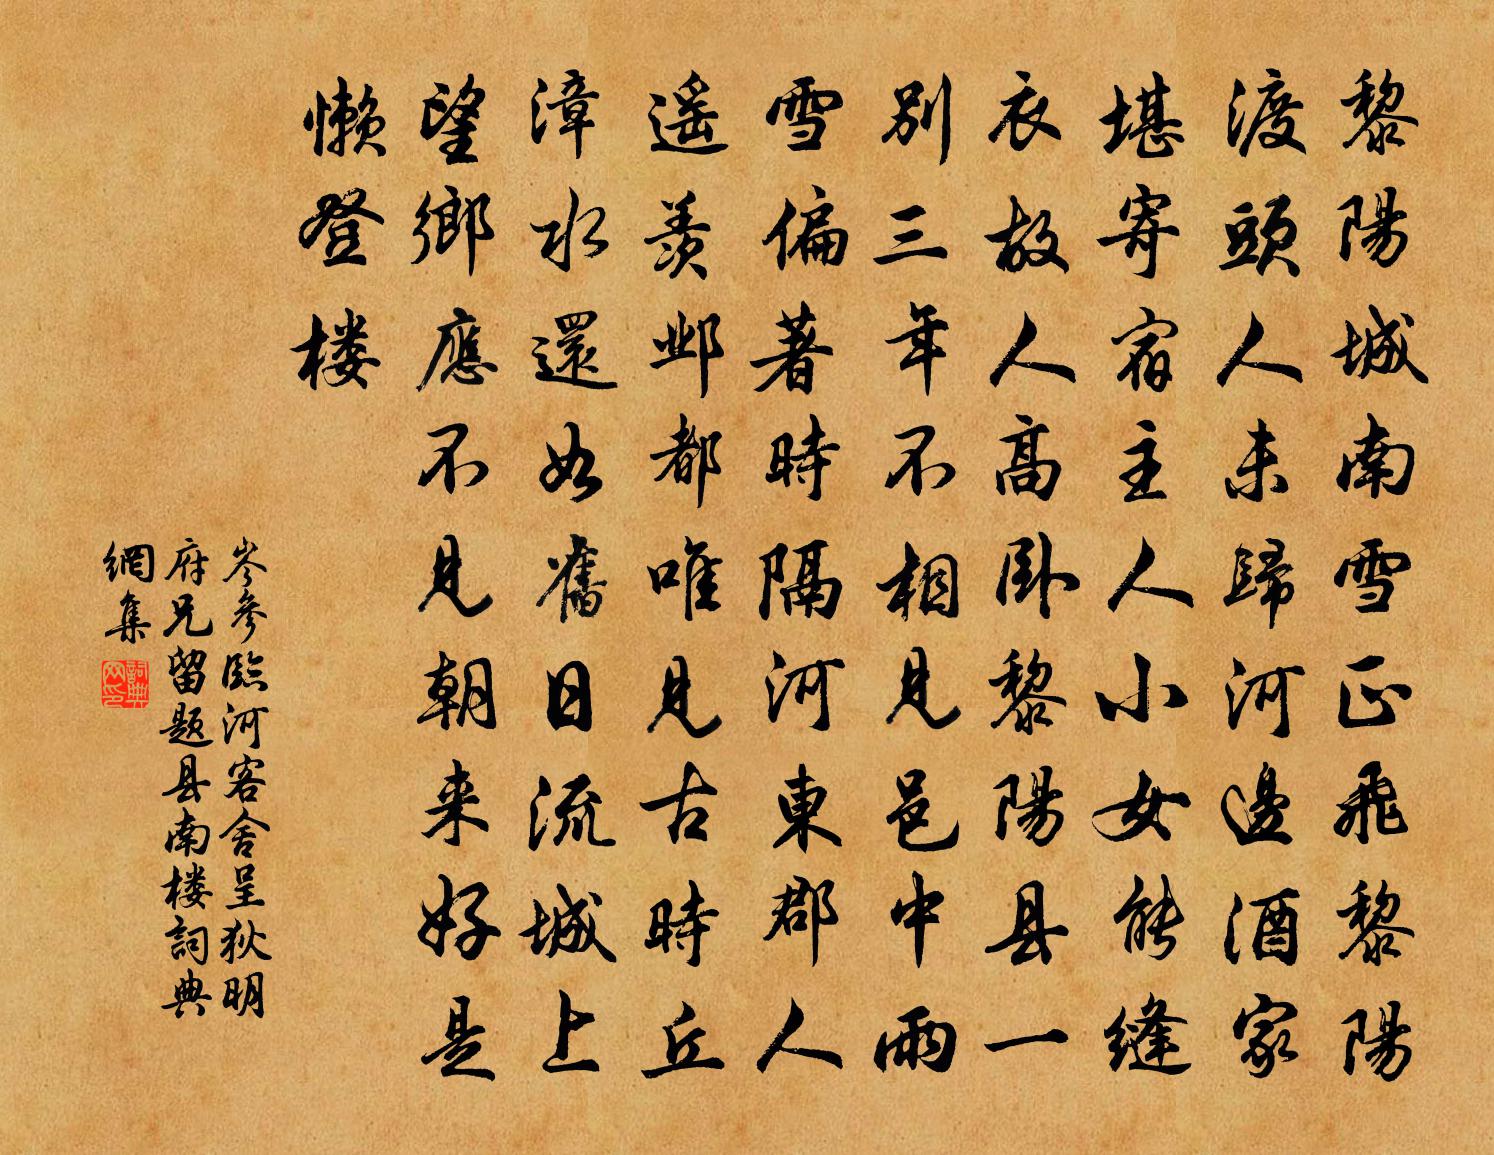 黎陽城南雪正飛黎陽
渡頭人未歸河邊酒家
堪寄宿主人小女能縫
衣故人高卧黎陽县一
別三年不相見邑中雨
雪偏著時隔河東郡人
遥羨邺都唯見古時丘
漳水還如舊日流城上
望鄉應不見朝来好是
懶登楼
岑參臨河客舍呈狄明
府兄留题县南楼詞典
網集